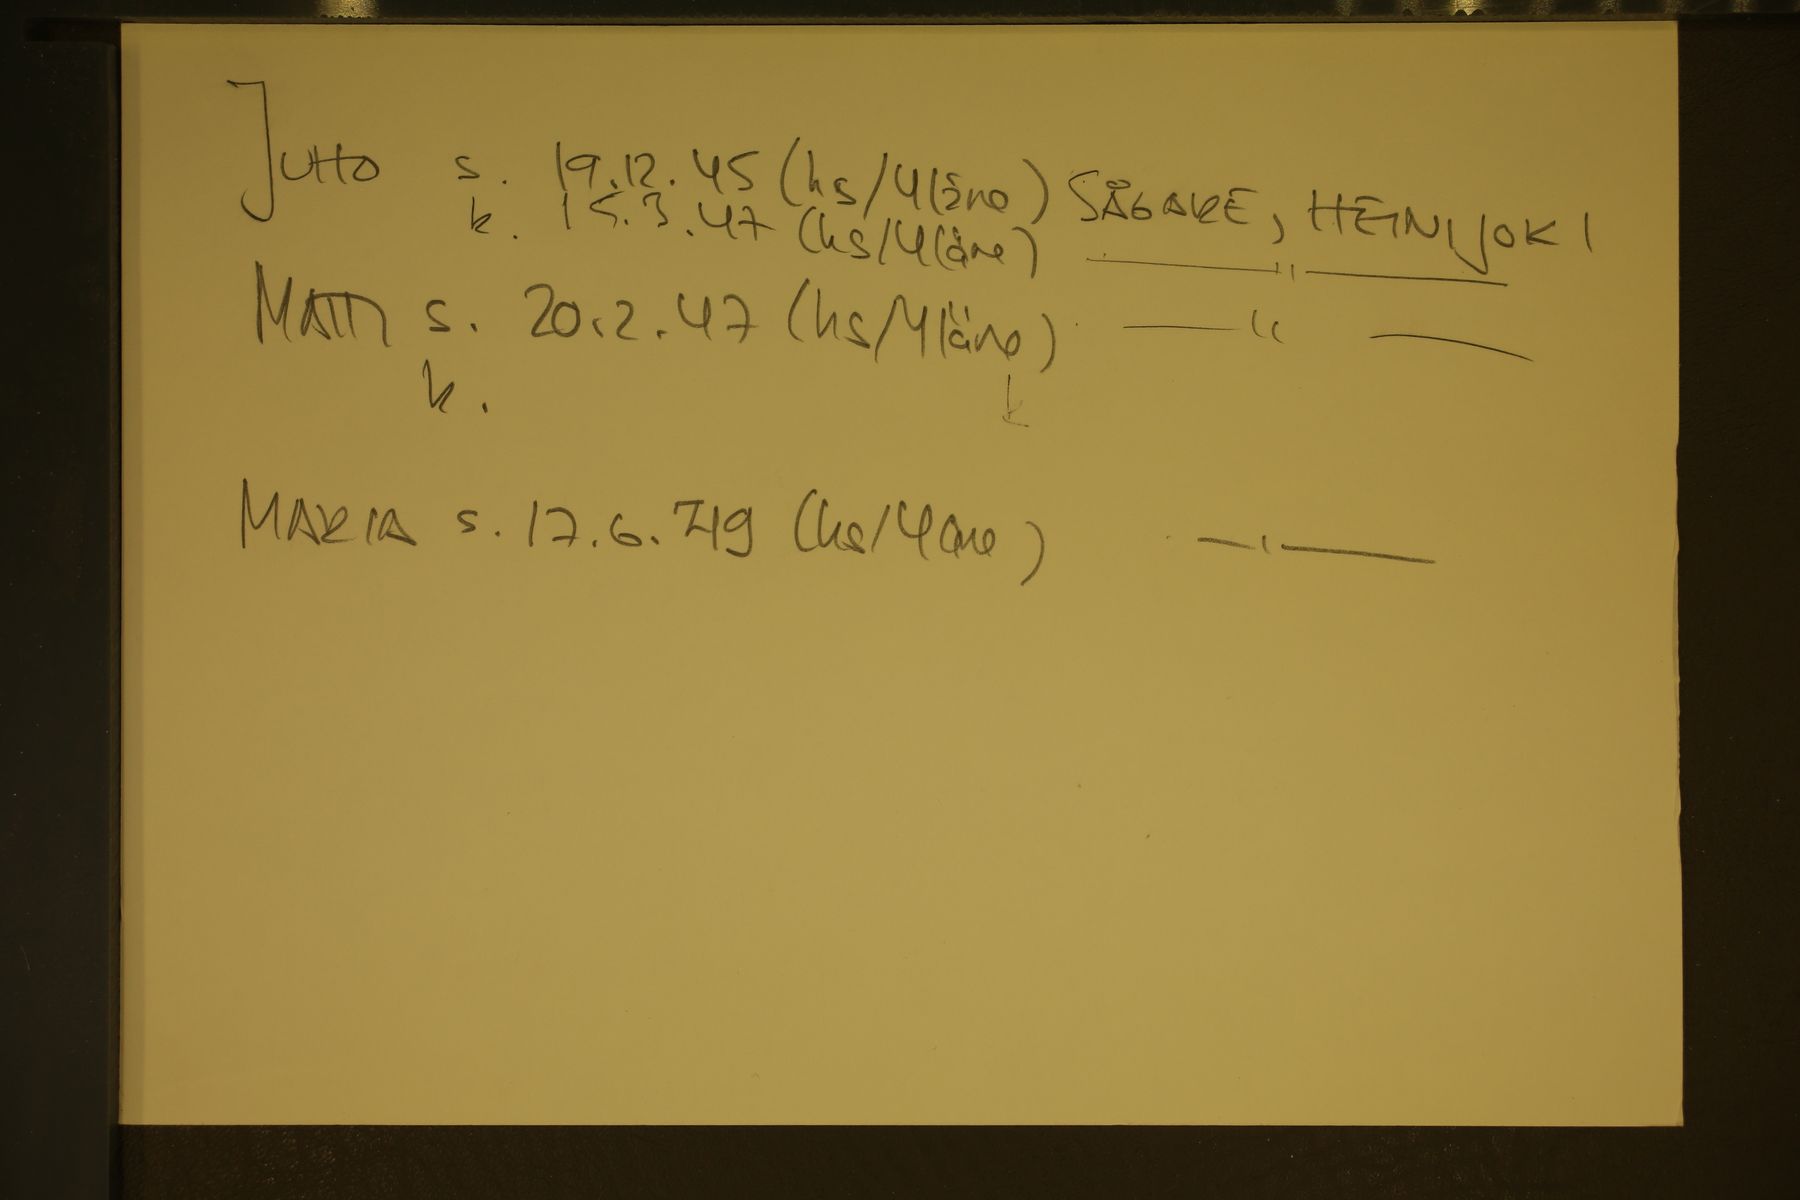 JUHO s. 19.12.45 (hs/Yläne) SÅGARE, HEINIJOKI
k. 15.3.47 (hs/Yläne) —"—
MATTI s. 20.2.47 (hs/Yläne) —"—
k. k
MARIA s. 17.6.49 (hs/Yläne) —"—